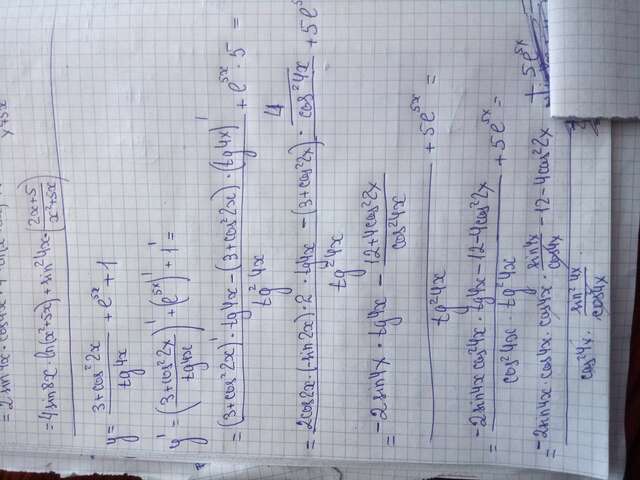 = 2sin4x · cos4x
y45x
= 4sin8x · ln(x²+5x) + sin²4x · ((2x+5)/(x²+5x))
y = (3+cos²2x)/(tg4x) + e^(5x) + 1
y' = ((3+cos²2x)/(tg4x))' + (e^(5x))' + 1' =
= ((3+cos²2x)' · tg4x − (3+cos²2x) · (tg4x)')/(tg²4x) + e^(5x) · 5 =
= (2cos2x · (−sin2x) · 2 · tg4x − (3+cos²2x) · 4/(cos²4x))/(tg²4x) + 5e^(5x)
= (−2sin4x · tg4x − (12+4cos²2x)/(cos²4x))/(tg²4x) + 5e^(5x) =
= (−2sin4x cos²4x · tg4x − 12 − 4cos²2x)/(cos²4x · tg²4x) + 5e^(5x) =
= (−2sin4x · cos4x · cos4x · (sin4x)/(cos4x) − 12 − 4cos²2x)/(cos²4x · (sin²4x)/(cos²4x)) + 5e^(5x)